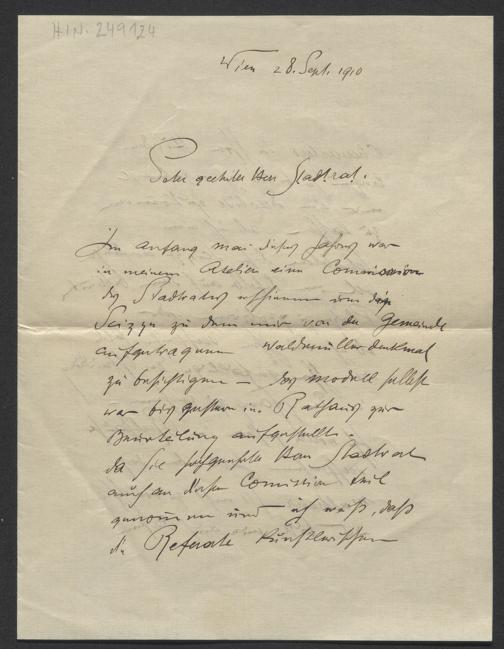 H.I.N. 249124
Wien 28. Sept. 1910
Sehr geehrter Herr Stadtrat.
Im anfang mai dieses Jahres war
in meinem Atelier eine Comission
des Stadtrates erschienen um die
Scizze zu dem mir von der Gemeinde
aufgetragenen Waldmüllerdenkmal
zu besichtigen – das modell selbst
war bis gestern im Rathaus zur
Beurteilung aufgestellt.
da Sie sehrgeehrter Herr Stadtrat
auch an dieser Comission teil
genommen und ich weiß, daß
die Referate